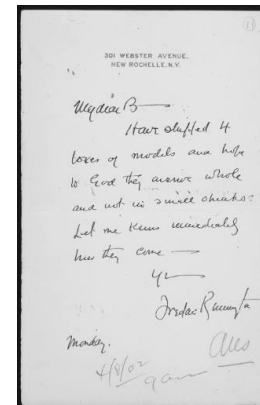 301 WEBSTER AVENUE.
NEW ROCHELLE. N.Y.
My dear B—
Have shipped 4
boxes of models and hope
to God they arrive whole
and not in small chunks.
Let me know immediately
how they come —
Frederic Remington
Monday.
4/8/02
Ans